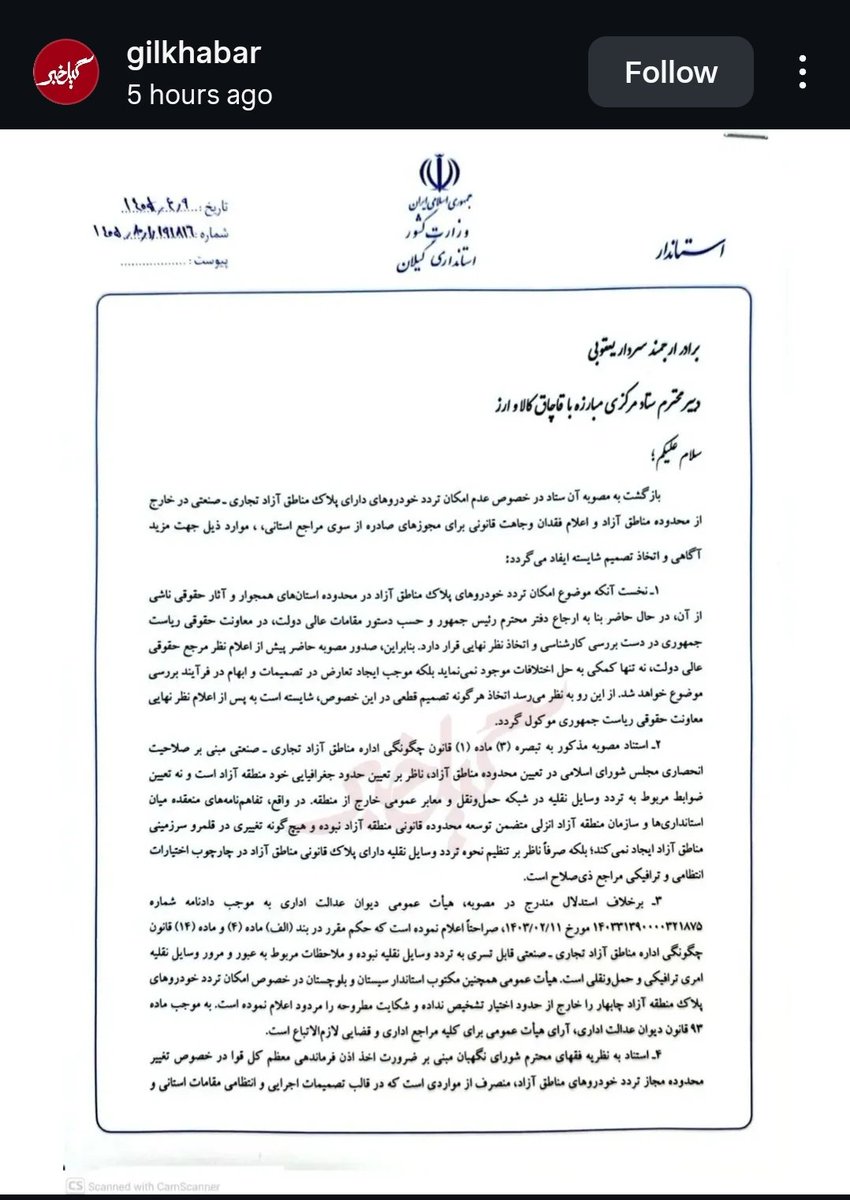 gilkhabar
5 hours ago
Follow
گیل‌خبر
جمهوری اسلامی ایران
وزارت کشور
استانداری گیلان
استاندار
تاریخ :
شماره :
پیوست : ..................
برادر ارجمند سردار یعقوبی
دبیر محترم ستاد مرکزی مبارزه با قاچاق کالا و ارز
سلام علیکم؛
بازگشت به مصوبه آن ستاد در خصوص عدم امکان تردد خودروهای دارای پلاک مناطق آزاد تجاری ـ صنعتی در خارج
از محدوده مناطق آزاد و اعلام فقدان وجاهت قانونی برای مجوزهای صادره از سوی مراجع استانی، ، موارد ذیل جهت مزید
آگاهی و اتخاذ تصمیم شایسته ایفاد می‌گردد:
۱ـ نخست آنکه موضوع امکان تردد خودروهای پلاک مناطق آزاد در محدوده استان‌های همجوار و آثار حقوقی ناشی
از آن، در حال حاضر بنا به ارجاع دفتر محترم رئیس جمهور و حسب دستور مقامات عالی دولت، در معاونت حقوقی ریاست
جمهوری در دست بررسی کارشناسی و اتخاذ نظر نهایی قرار دارد. بنابراین، صدور مصوبه حاضر پیش از اعلام نظر مرجع حقوقی
عالی دولت، نه تنها کمکی به حل اختلافات موجود نمی‌نماید بلکه موجب ایجاد تعارض در تصمیمات و ابهام در فرآیند بررسی
موضوع خواهد شد. از این رو به نظر می‌رسد اتخاذ هرگونه تصمیم قطعی در این خصوص، شایسته است به پس از اعلام نظر نهایی
معاونت حقوقی ریاست جمهوری موکول گردد.
۲ـ استناد مصوبه مذکور به تبصره (۳) ماده (۱) قانون چگونگی اداره مناطق آزاد تجاری ـ صنعتی مبنی بر صلاحیت
انحصاری مجلس شورای اسلامی در تعیین محدوده مناطق آزاد، ناظر بر تعیین حدود جغرافیایی خود منطقه آزاد است و نه تعیین
ضوابط مربوط به تردد وسایل نقلیه در شبکه حمل‌ونقل و معابر عمومی خارج از منطقه. در واقع، تفاهم‌نامه‌های منعقده میان
استانداری‌ها و سازمان منطقه آزاد انزلی متضمن توسعه محدوده قانونی منطقه آزاد نبوده و هیچ‌گونه تغییری در قلمرو سرزمینی
مناطق آزاد ایجاد نمی‌کند؛ بلکه صرفاً ناظر بر تنظیم نحوه تردد وسایل نقلیه دارای پلاک قانونی مناطق آزاد در چارچوب اختیارات
انتظامی و ترافیکی مراجع ذی‌صلاح است.
۳ـ برخلاف استدلال مندرج در مصوبه، هیأت عمومی دیوان عدالت اداری به موجب دادنامه شماره
۱۴۰۳۳۱۳۹۰۰۰۰۳۲۱۸۷۵ مورخ ۱۴۰۳/۰۲/۱۱، صراحتاً اعلام نموده است که حکم مقرر در بند (الف) ماده (۴) و ماده (۱۴) قانون
چگونگی اداره مناطق آزاد تجاری ـ صنعتی قابل تسری به تردد وسایل نقلیه نبوده و ملاحظات مربوط به عبور و مرور وسایل نقلیه
امری ترافیکی و حمل‌ونقلی است. هیأت عمومی همچنین مکتوب استاندار سیستان و بلوچستان در خصوص امکان تردد خودروهای
پلاک منطقه آزاد چابهار را خارج از حدود اختیار تشخیص نداده و شکایت مطروحه را مردود اعلام نموده است. به موجب ماده
۹۳ قانون دیوان عدالت اداری، آرای هیأت عمومی برای کلیه مراجع اداری و قضایی لازم‌الاتباع است.
۴ـ استناد به نظریه فقهای محترم شورای نگهبان مبنی بر ضرورت اخذ اذن فرماندهی معظم کل قوا در خصوص تغییر
محدوده مجاز تردد خودروهای مناطق آزاد، منصرف از مواردی است که در قالب تصمیمات اجرایی و انتظامی مقامات استانی و
CS Scanned with CamScanner